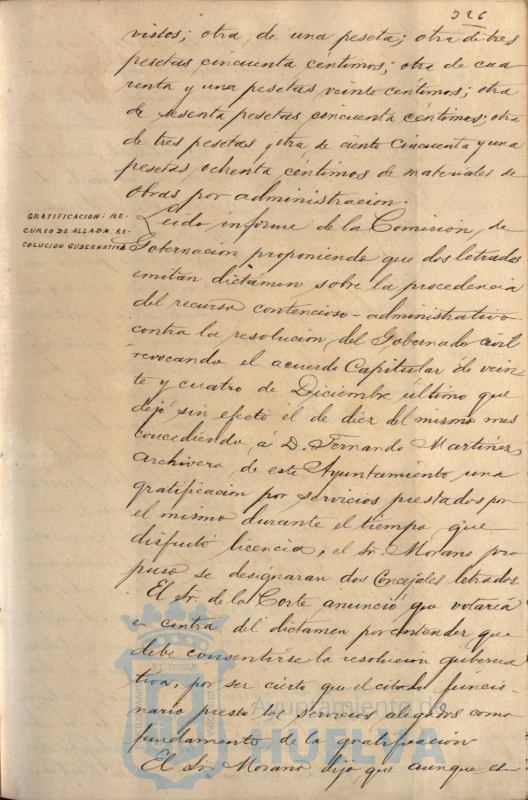 326
vistos; otra de una peseta; otra de tres
pesetas cincuenta céntimos; otra de cua
renta y una pesetas veinte céntimos; otra
de sesenta pesetas cincuenta céntimos; otra
de tres pesetas y otra de ciento cincuenta y una
pesetas ochenta céntimos de materiales de
obras por administracion.
GRATIFICACION: RE-
CURSO DE ALZADA. RE-
SOLUCION GUBERNATIVA
Leido informe de la Comision de
Gobernacion proponiendo que dos letrados
emitan dictámen sobre la procedencia
del recurso contencioso-administrativo
contra la resolucion del Gobernador civil
revocando el acuerdo Capitular de vein
te y cuatro de Diciembre último que
dejó sin efecto el de diez del mismo mes
concediendo á D. Fernando Martinez,
archivero de este Ayuntamiento una
gratificacion por servicios prestados por
el mismo durante el tiempo que
disfrutó licencia, el Sr. Morano pro
puso se designaran dos Concejales letrados
El Sr. de la Corte anunció que votaría
en contra del dictamen por entender que
debe consentirse la resolucion guberna
tiva, por ser cierto que el citado funcio-
nario prestó los servicios alegados como
fundamento de la gratificacion
El Sr. Morano dijo que aunque es-
ET TERRA
Ayuntamiento de
HUELVA